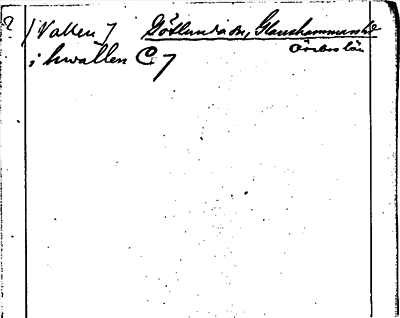 ? /Vallen/ Götlunda sn, Glanshammars hd
Örebro län
i hwallen C 7